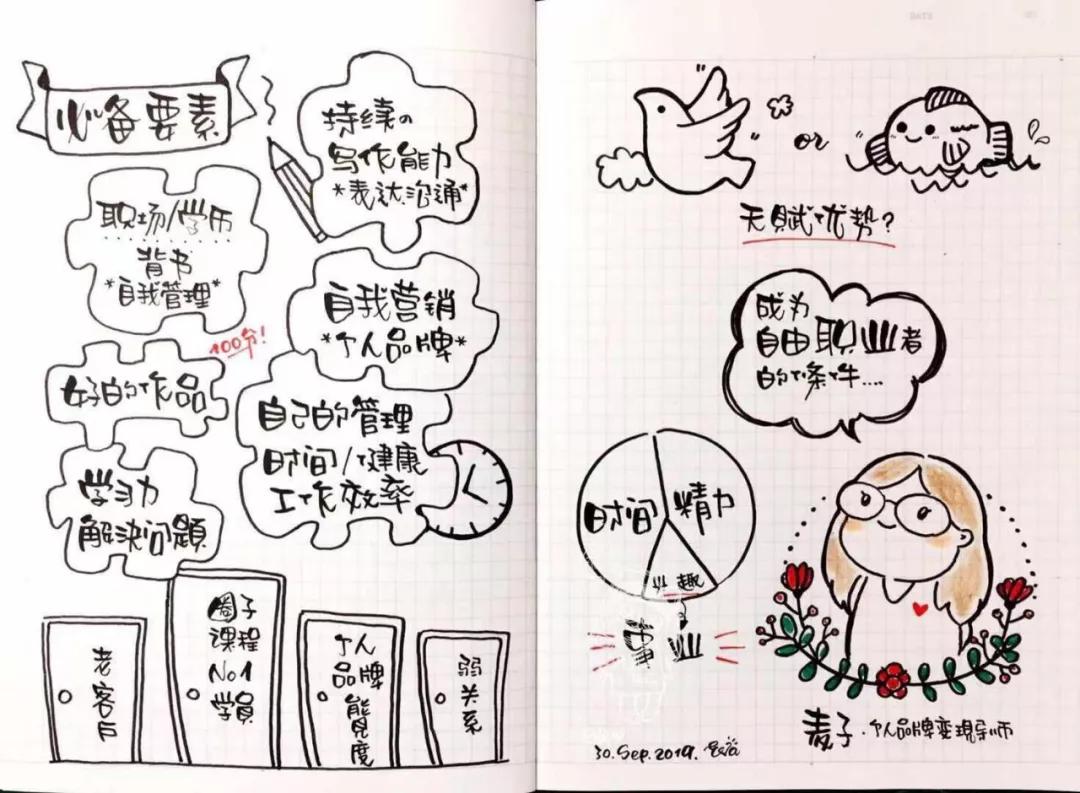 必备要素
持续の
写作能力
*表达沟通*
职场/学历
背书
*自我管理*
自我营销
*个人品牌*
100分!
好的作品
自己的管理
时间/健康
工作效率
学习力
解決问題
老客戶
圈子
课程
No1
学員
个人
品牌
能見度
弱关系
DATE
or
天賦优势?
成为
自由职业者
的條件....
时间
精力
兴趣
事业
麦子·个人品牌变現导师
30.Sep.2019.